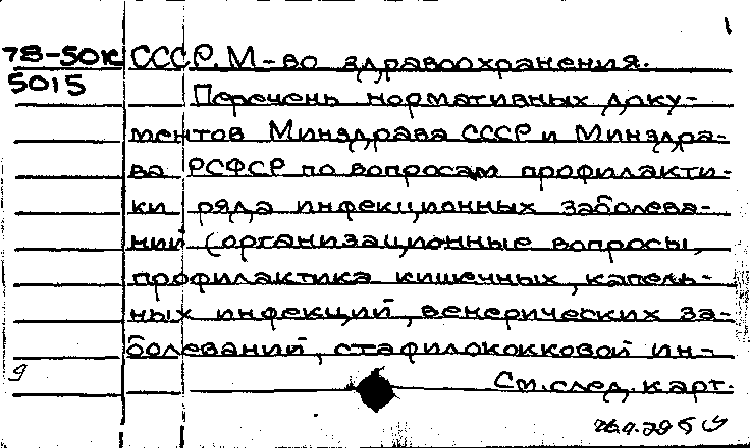 1
78-50К СССР. М-во здравоохранения.
5015 Перечень нормативных доку-
ментов Минздрава СССР и Минздра-
ва РСФСР по вопросам профилакти-
ки ряда инфекционных заболева-
ний (организационные вопросы,
профилактика кишечных, капель-
ных инфекций, венерических за-
болеваний, стафилококковой ин-
9 См. след. карт.